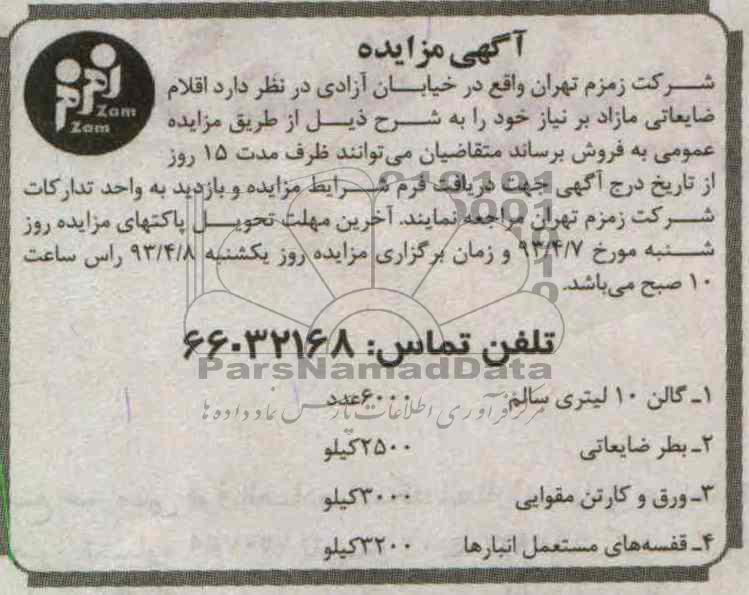 آگهی مزایده
شرکت زمزم تهران واقع در خیابان آزادی در نظر دارد اقلام
ضایعاتی مازاد بر نیاز خود را به شرح ذیل از طریق مزایده
عمومی به فروش برساند متقاضیان می‌توانند ظرف مدت ۱۵ روز
از تاریخ درج آگهی جهت دریافت فرم شرایط مزایده و بازدید به واحد تدارکات
شرکت زمزم تهران مراجعه نمایند. آخرین مهلت تحویل پاکتهای مزایده روز
شنبه مورخ ۹۳/۴/۷ و زمان برگزاری مزایده روز یکشنبه ۹۳/۴/۸ راس ساعت
۱۰ صبح می‌باشد.
تلفن تماس: ۶۶۰۳۲۱۶۸
۱ـ گالن ۱۰ لیتری سالم ۶۰۰۰عدد
۲ـ بطر ضایعاتی ۲۵۰۰کیلو
۳ـ ورق و کارتن مقوایی ۳۰۰۰کیلو
۴ـ قفسه‌های مستعمل انبارها ۳۲۰۰کیلو
زمزم
Zam
Zam
ParsNamadData
مرکز فرآوری اطلاعات پارس نماد داده ها